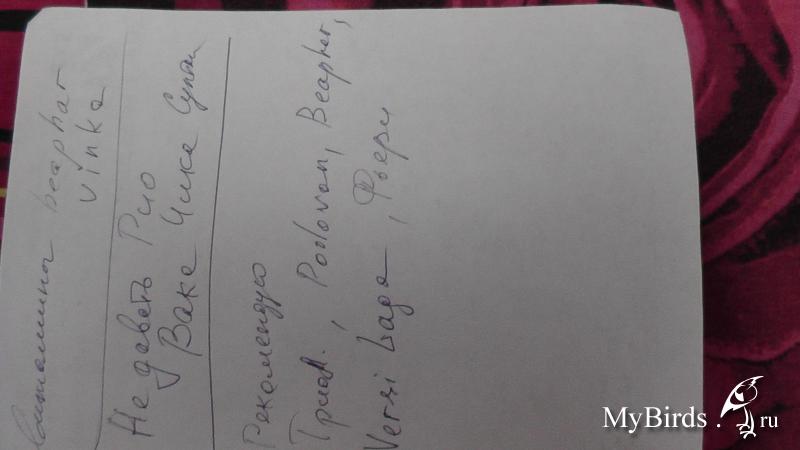 витамины beaphar
vinka
Не давать Рио
Ваке Чика Супан
Рекомендую
Триол, Padovan, Beaphar,
Versi Laga, Фьери
MyBirds.ru